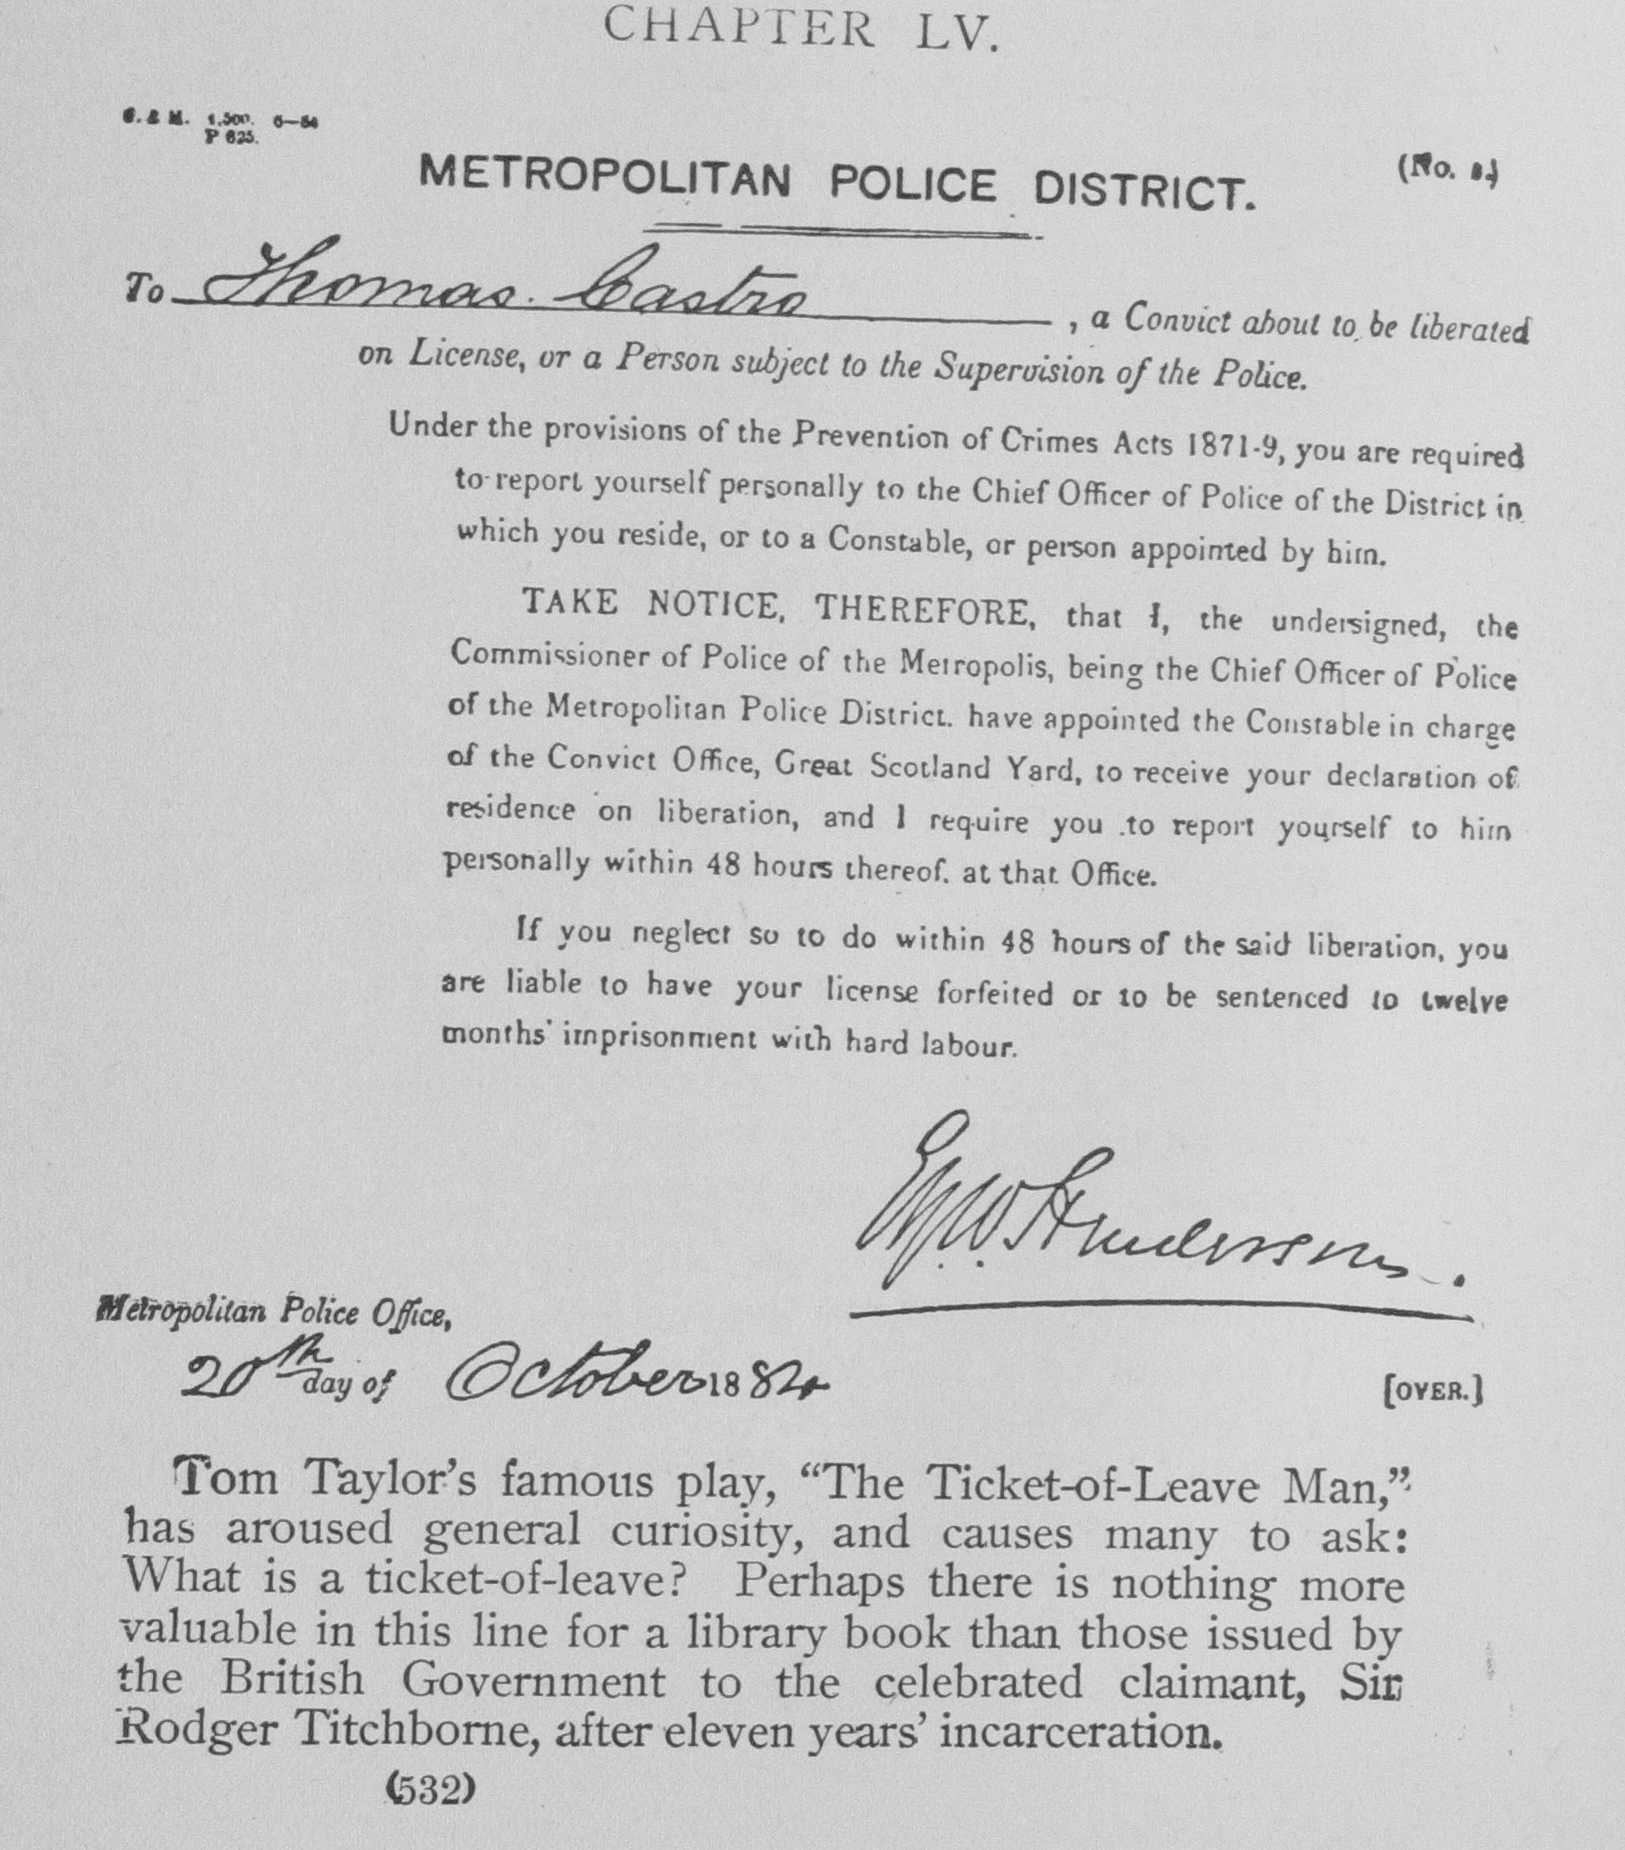 CHAPTER LV.
S. & M. 1,500. 6—84
P 625.
METROPOLITAN POLICE DISTRICT.
(No. 1.)
To Thomas Castro, a Convict about to be liberated
on License, or a Person subject to the Supervision of the Police.
Under the provisions of the Prevention of Crimes Acts 1871-9, you are required
to report yourself personally to the Chief Officer of Police of the District in
which you reside, or to a Constable, or person appointed by him.
TAKE NOTICE, THEREFORE, that I, the undersigned, the
Commissioner of Police of the Metropolis, being the Chief Officer of Police
of the Metropolitan Police District. have appointed the Constable in charge
of the Convict Office, Great Scotland Yard, to receive your declaration of
residence on liberation, and I require you to report yourself to him
personally within 48 hours thereof. at that Office.
If you neglect so to do within 48 hours of the said liberation, you
are liable to have your license forfeited or to be sentenced to twelve
months' imprisonment with hard labour.
E.Y.W. Henderson.
Metropolitan Police Office,
20th day of October 1884
[OVER.]
Tom Taylor's famous play, "The Ticket-of-Leave Man,"
has aroused general curiosity, and causes many to ask:
What is a ticket-of-leave? Perhaps there is nothing more
valuable in this line for a library book than those issued by
the British Government to the celebrated claimant, Sir
Rodger Titchborne, after eleven years' incarceration.
(532)